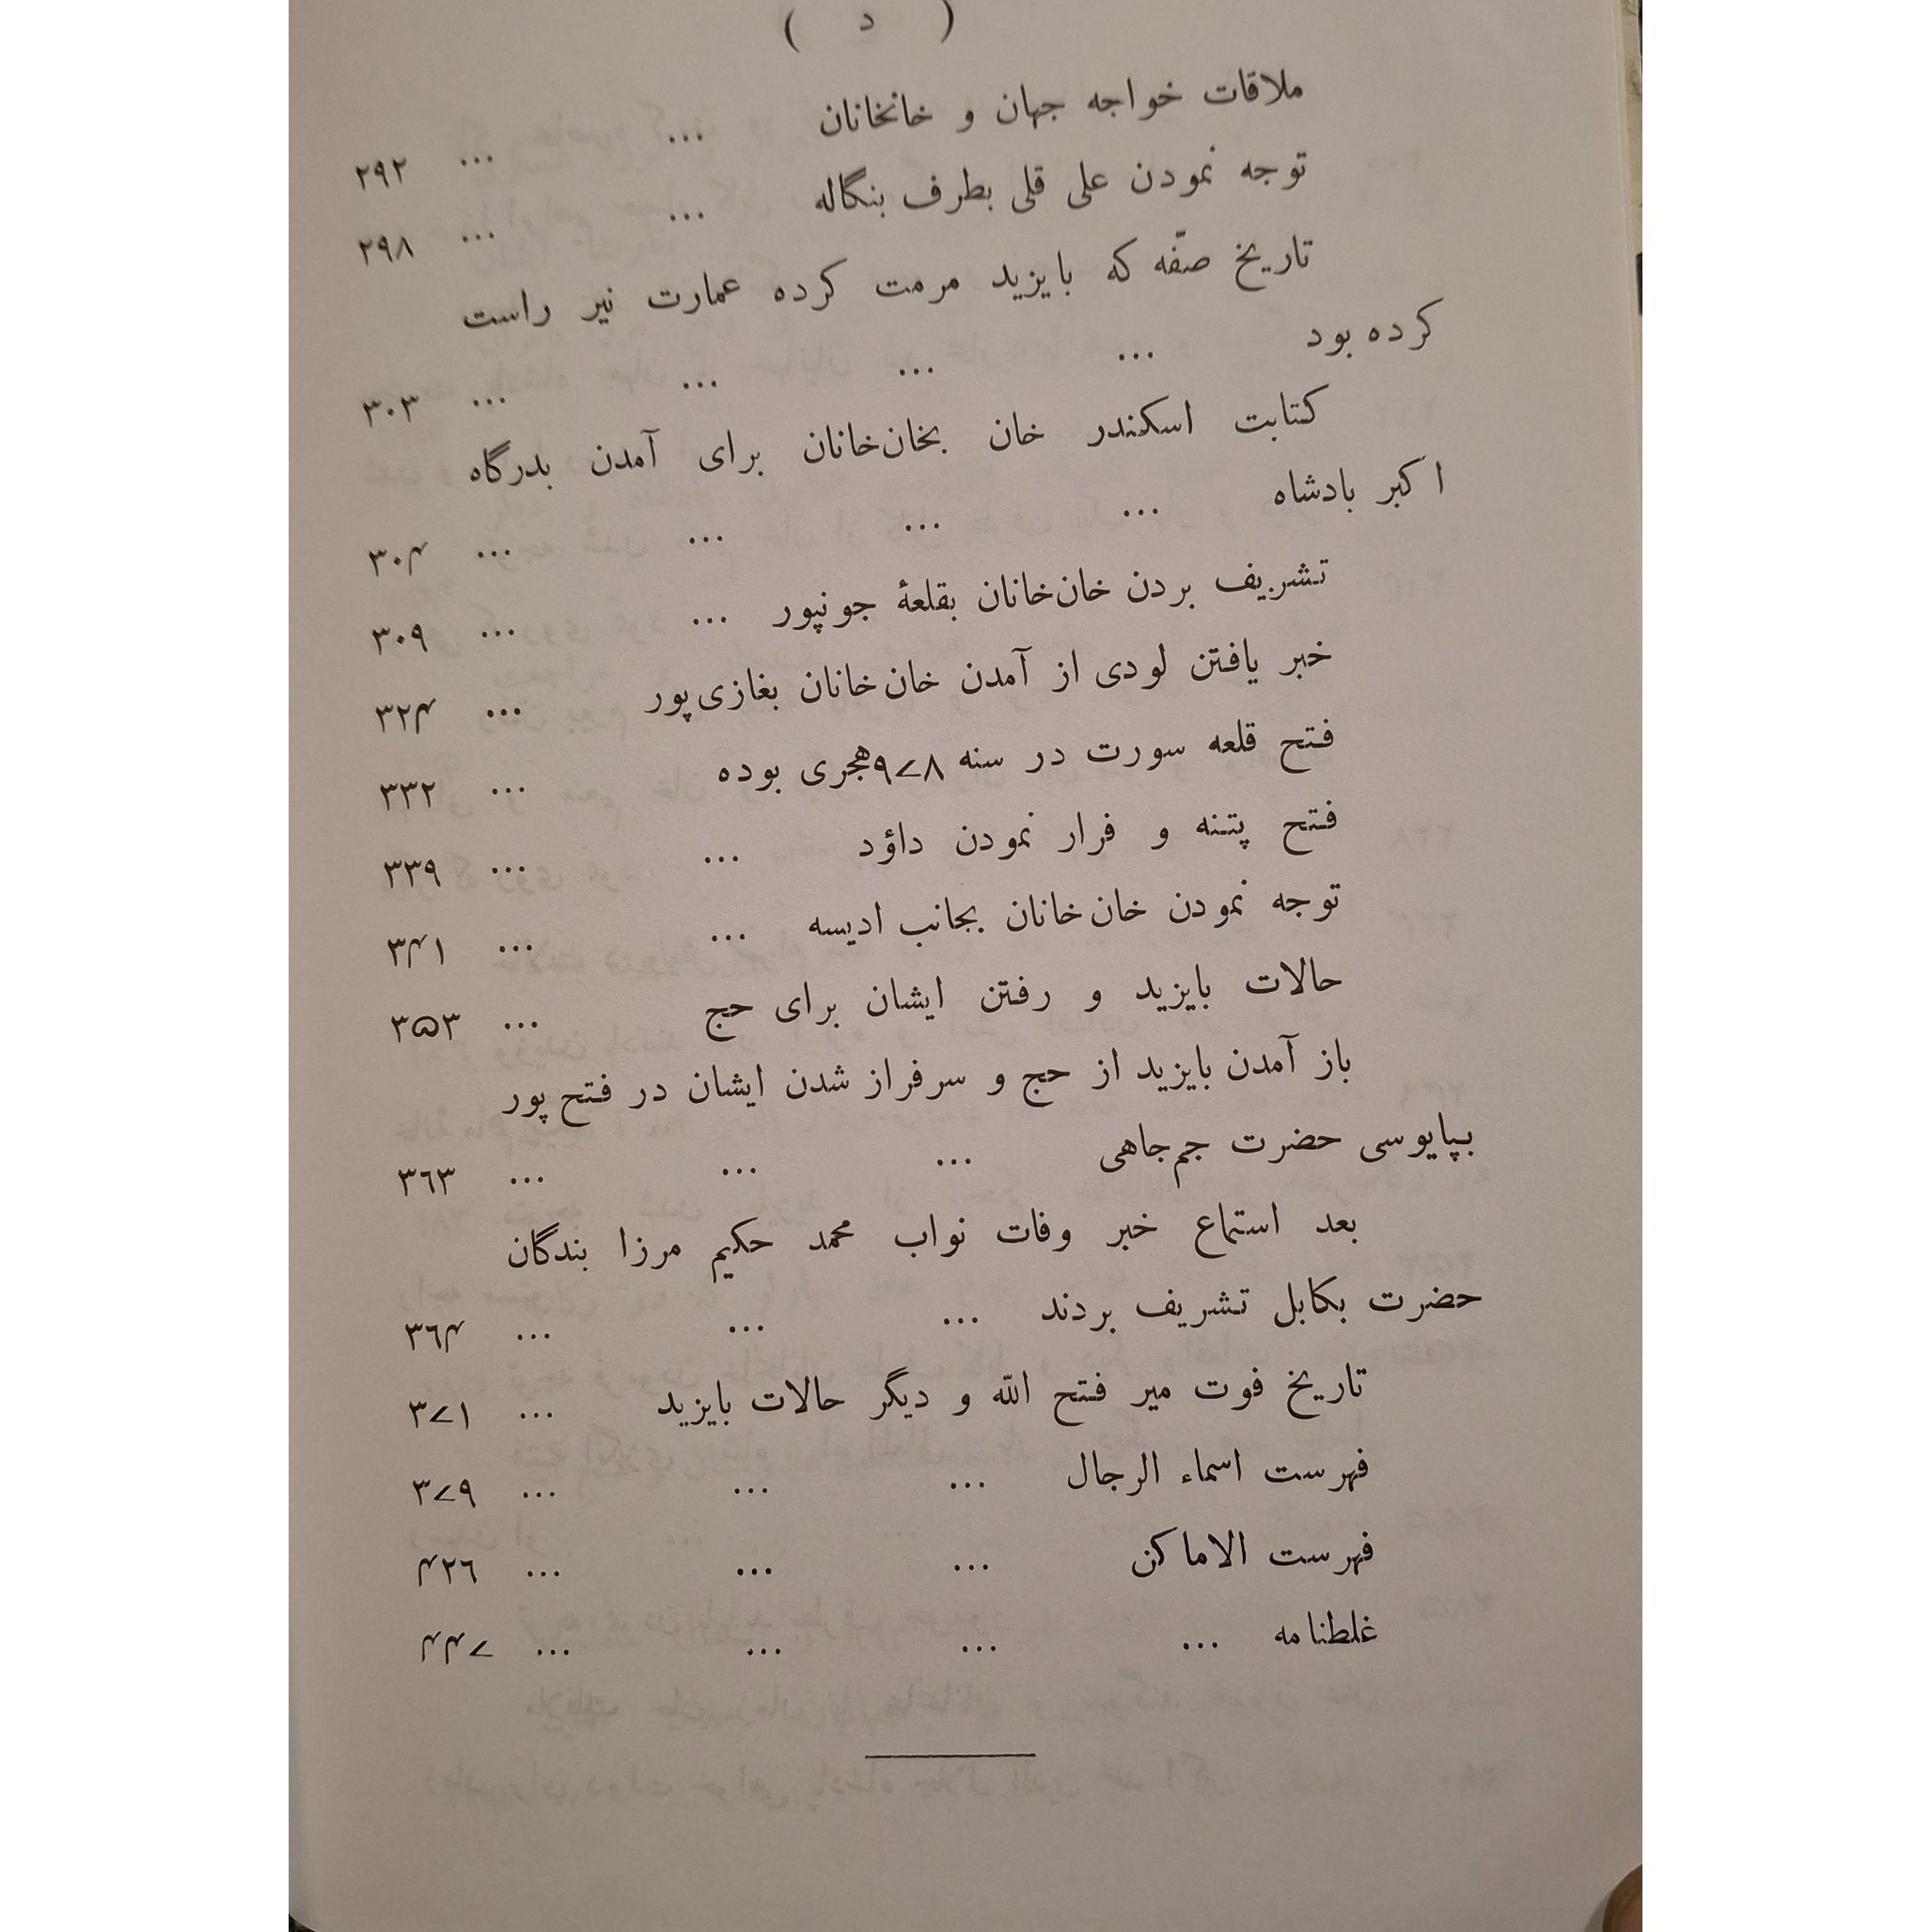 ( د )
ملاقات خواجه جهان و خانخانان ... ... ۲۹۲
توجه نمودن علی قلی بطرف بنگاله ... ... ۲۹۸
تاریخ صفّه که بایزید مرمت کرده عمارت نیر راست
کرده بود ... ... ... ... ۳۰۳
کتابت اسکندر خان بخان‌خانان برای آمدن بدرگاه
اکبر بادشاه ... ... ... ... ۳۰۴
تشریف بردن خان‌خانان بقلعهٔ جونپور ... ... ۳۰۹
خبر یافتن لودی از آمدن خان‌خانان بغازی‌پور ... ۳۲۴
فتح قلعه سورت در سنه ۹۷۸هجری بوده ... ۳۳۲
فتح پتنه و فرار نمودن داؤد ... ... ۳۳۹
توجه نمودن خان‌خانان بجانب ادیسه ... ... ۳۴۱
حالات بایزید و رفتن ایشان برای حج ... ۳۵۳
باز آمدن بایزید از حج و سرفراز شدن ایشان در فتح پور
بپایوسی حضرت جم‌جاهی ... ... ... ۳۶۳
بعد استماع خبر وفات نواب محمد حکیم مرزا بندگان
حضرت بکابل تشریف بردند ... ... ... ۳۶۴
تاریخ فوت میر فتح اللّه و دیگر حالات بایزید ... ۳۷۱
فهرست اسماء الرجال ... ... ... ۳۷۹
فهرست الاماکن ... ... ... ۴۲۶
غلطنامه ... ... ... ... ۴۴۷